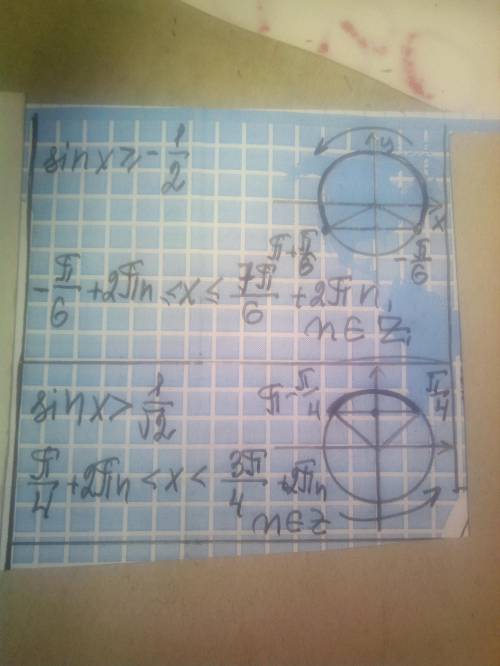 sin x ≥ -1/2
y
x
π + π/6
-π/6
-π/6 + 2πn ≤ x ≤ 7π/6 + 2πn,
n ∈ Z,
sin x > 1/√2
π - π/4
π/4
π/4 + 2πn < x < 3π/4 + 2πn
n ∈ Z